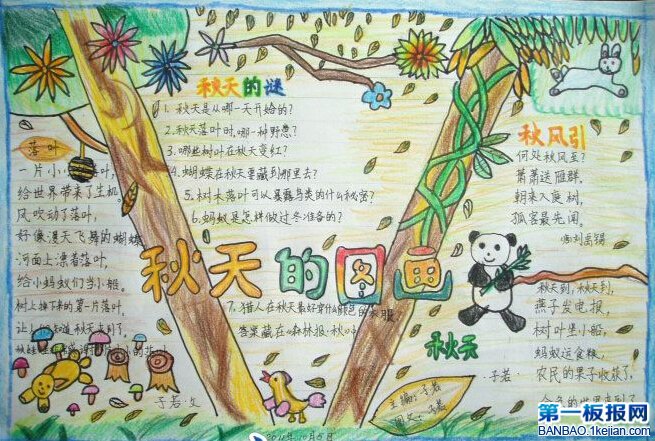 秋天的谜
1、秋天是从哪一天开始的？
2、秋天落叶时，哪一种
3、哪些树叶在秋天变红？
4、蝴蝶在秋天要藏到那里去？
5、树木落叶可以暴露鸟类的什么秘密？
6、蚂蚁是怎样做过冬准备的？
7、猎人在秋天最好穿什么颜色的衣服
答案藏在《森林报·秋》中
落叶
一片小小
给世界带来了生机。
风吹动了落叶，
好像漫天飞舞的蝴蝶
河面上漂着落叶，
给小蚂蚁们当小艇。
树上掉下来的第一片落叶，
知道秋天来到了，
子若·文
秋天的图画
秋风引
何处秋风至？
萧萧送雁群，
朝来入庭树，
孤客最先闻。
唐·刘禹锡
秋天
秋天到，秋天到，
燕子发电报，
树叶堡小船，
蚂蚁运食粮，
农民的果子收获了，
·子若·
主编：子若
子若
第一板报网
BANBAO.1kejian.com